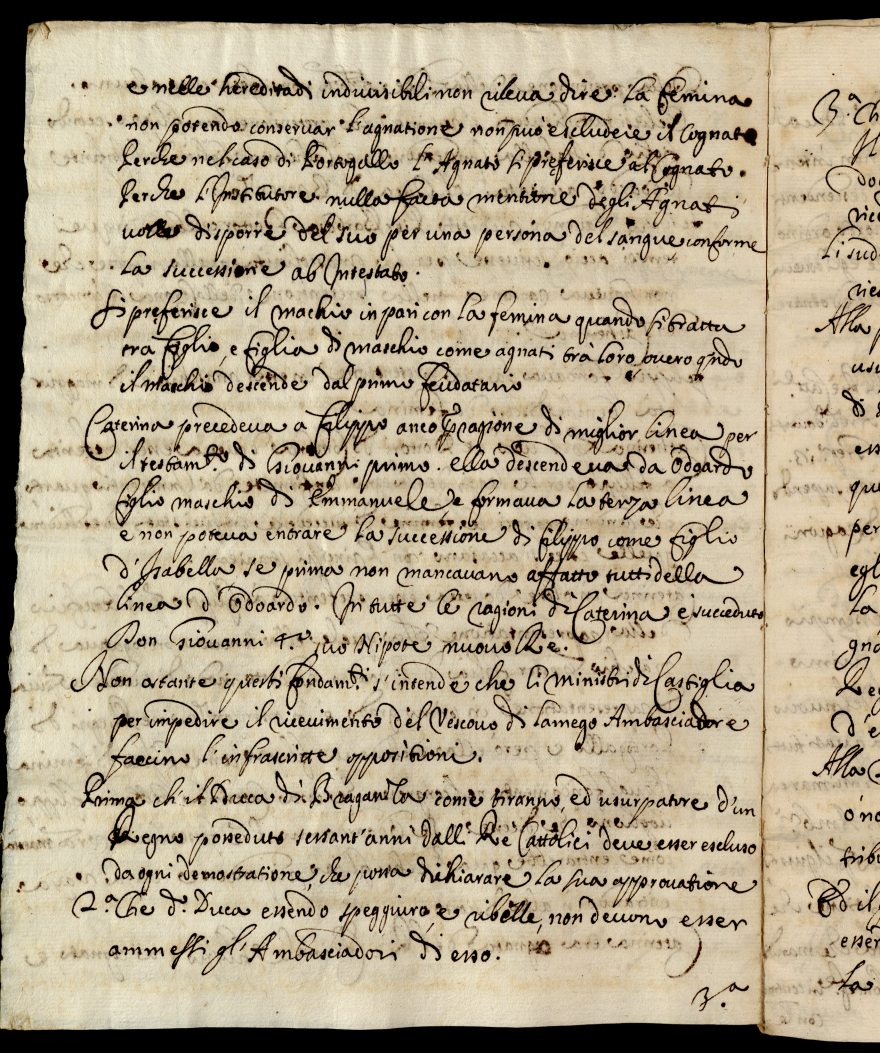 e nelle hereditadi indivisibili non rileva dire: La femina
non potendo conservar l'agnatione non può escludere il Cognato
Perche nel caso di Portogallo l'Agnato si preferisce al Cognato.
Perche l'Institutore nulla facta mentione degli Agnati
volle disporre del suo per una persona del sangue conforme
La successione ab Intestato.
Si preferisce il maschio in pari con la femina quando si tratta
tra figlio, e figlia di maschio come agnati trà loro, overo qndo
il maschio descende dal primo feudatario
Caterina precedeva a Filippo anco per ragione di miglior linea per
il testam.to di Giovanni primo. ella descendeva da Odoardo
figlio maschio di Emmanuele, e formava la terza linea
e non poteva entrare la successione di Filippo come figlio
d'Isabella se prima non mancavano affatto tutti della
linea d'Odoardo. In tutte le ragioni di Caterina è succeduto
Don Giovanni 4.to suo Nipote nuovo Rè.
Non ostante questi fondam.ti s'intende che li Ministri di Castiglia
per impedire il ricevimento del Vescovo di Lamego Ambasciadore
faccino l'infrascritte oppositioni.
Prima ch'il Duca di Braganza come tiranno, ed usurpatore d'un
Regno posseduto sessant'anni dalli Rè Cattolici deve esser escluso
da ogni demostratione, che possa dichiarare la sua approvatione
2.a Che d.o Duca essendo speggiuro, e ribelle, non devono esser
ammessi gl'Ambasciadori di esso.
3.a
3.a Ch